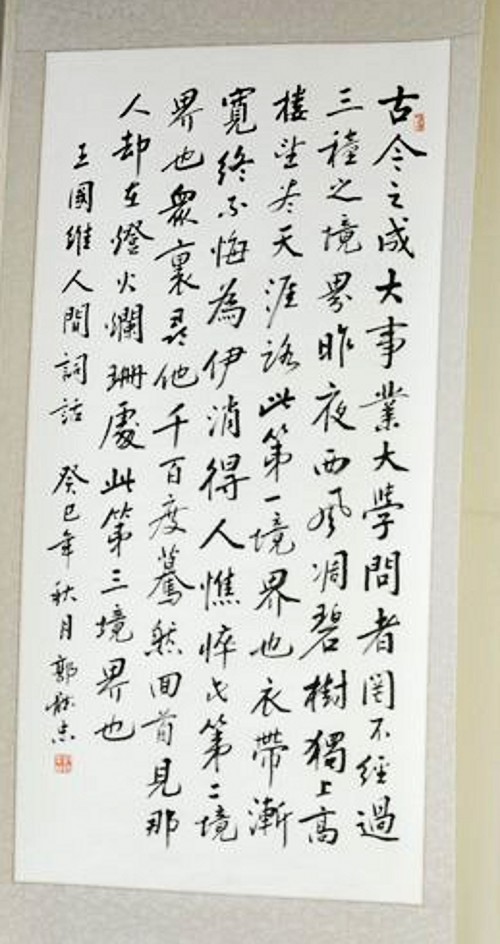 古今之成大事業大學問者罔不經過
三種之境界昨夜西風凋碧樹獨上高
樓望盡天涯路此第一境界也衣帶漸
寬終不悔為伊消得人憔悴此第二境
界也衆裏尋他千百度驀然回首見那
人却在燈火爛珊處此第三境界也
王國維人間詞話 癸巳年秋月郭忠